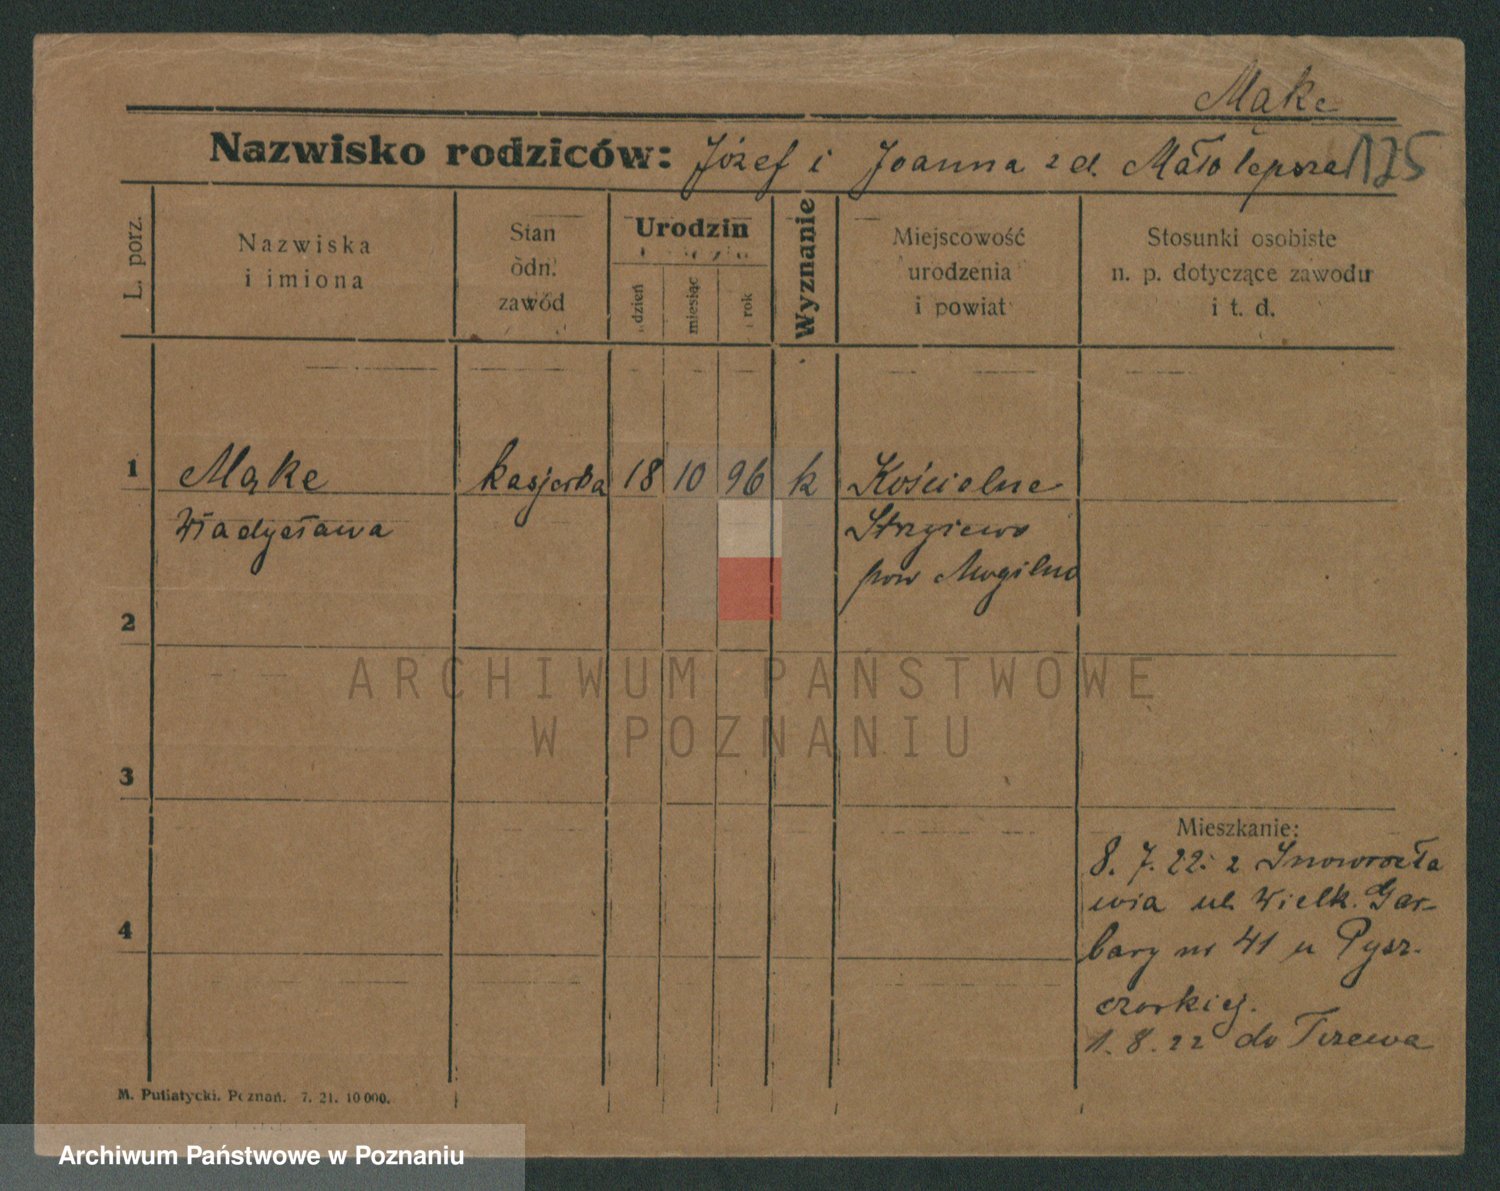 Mąke
Nazwisko rodziców: Józef i Joanna z d. Małolepsza 175
L. porz.
Nazwiska
i imiona
Stan
odn.
zawód
Urodzin
dzień
miesiąc
rok
Wyznanie
Miejscowość
urodzenia
i powiat
Stosunki osobiste
n. p. dotyczące zawodu
i t. d.
1 Mąke kasjerka 18 10 96 k Kościelne
Władysława Strzyżewo
pow Mogilno
2
ARCHIWUM PAŃSTWOWE
W POZNANIU
3
Mieszkanie:
8. 7. 22: z Inowrocła
wia ul. Wielk. Gar-
4
bary nr 41 u Pysz-
czorkiej.
1. 8. 22 do Tczewa
M. Putiatycki. Poznań. 7. 21. 10 000.
Archiwum Państwowe w Poznaniu